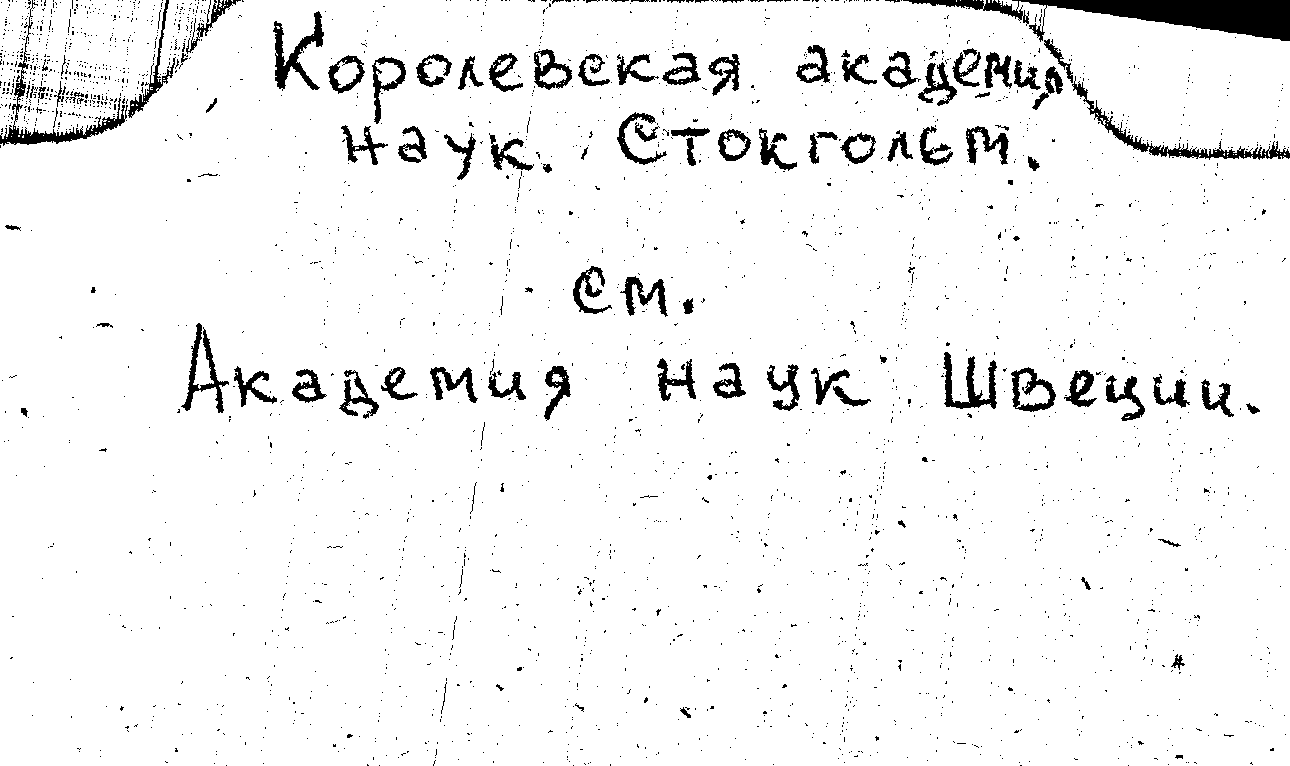 Королевская академия
наук. Стокгольм.
см.
Академия наук Швеции.